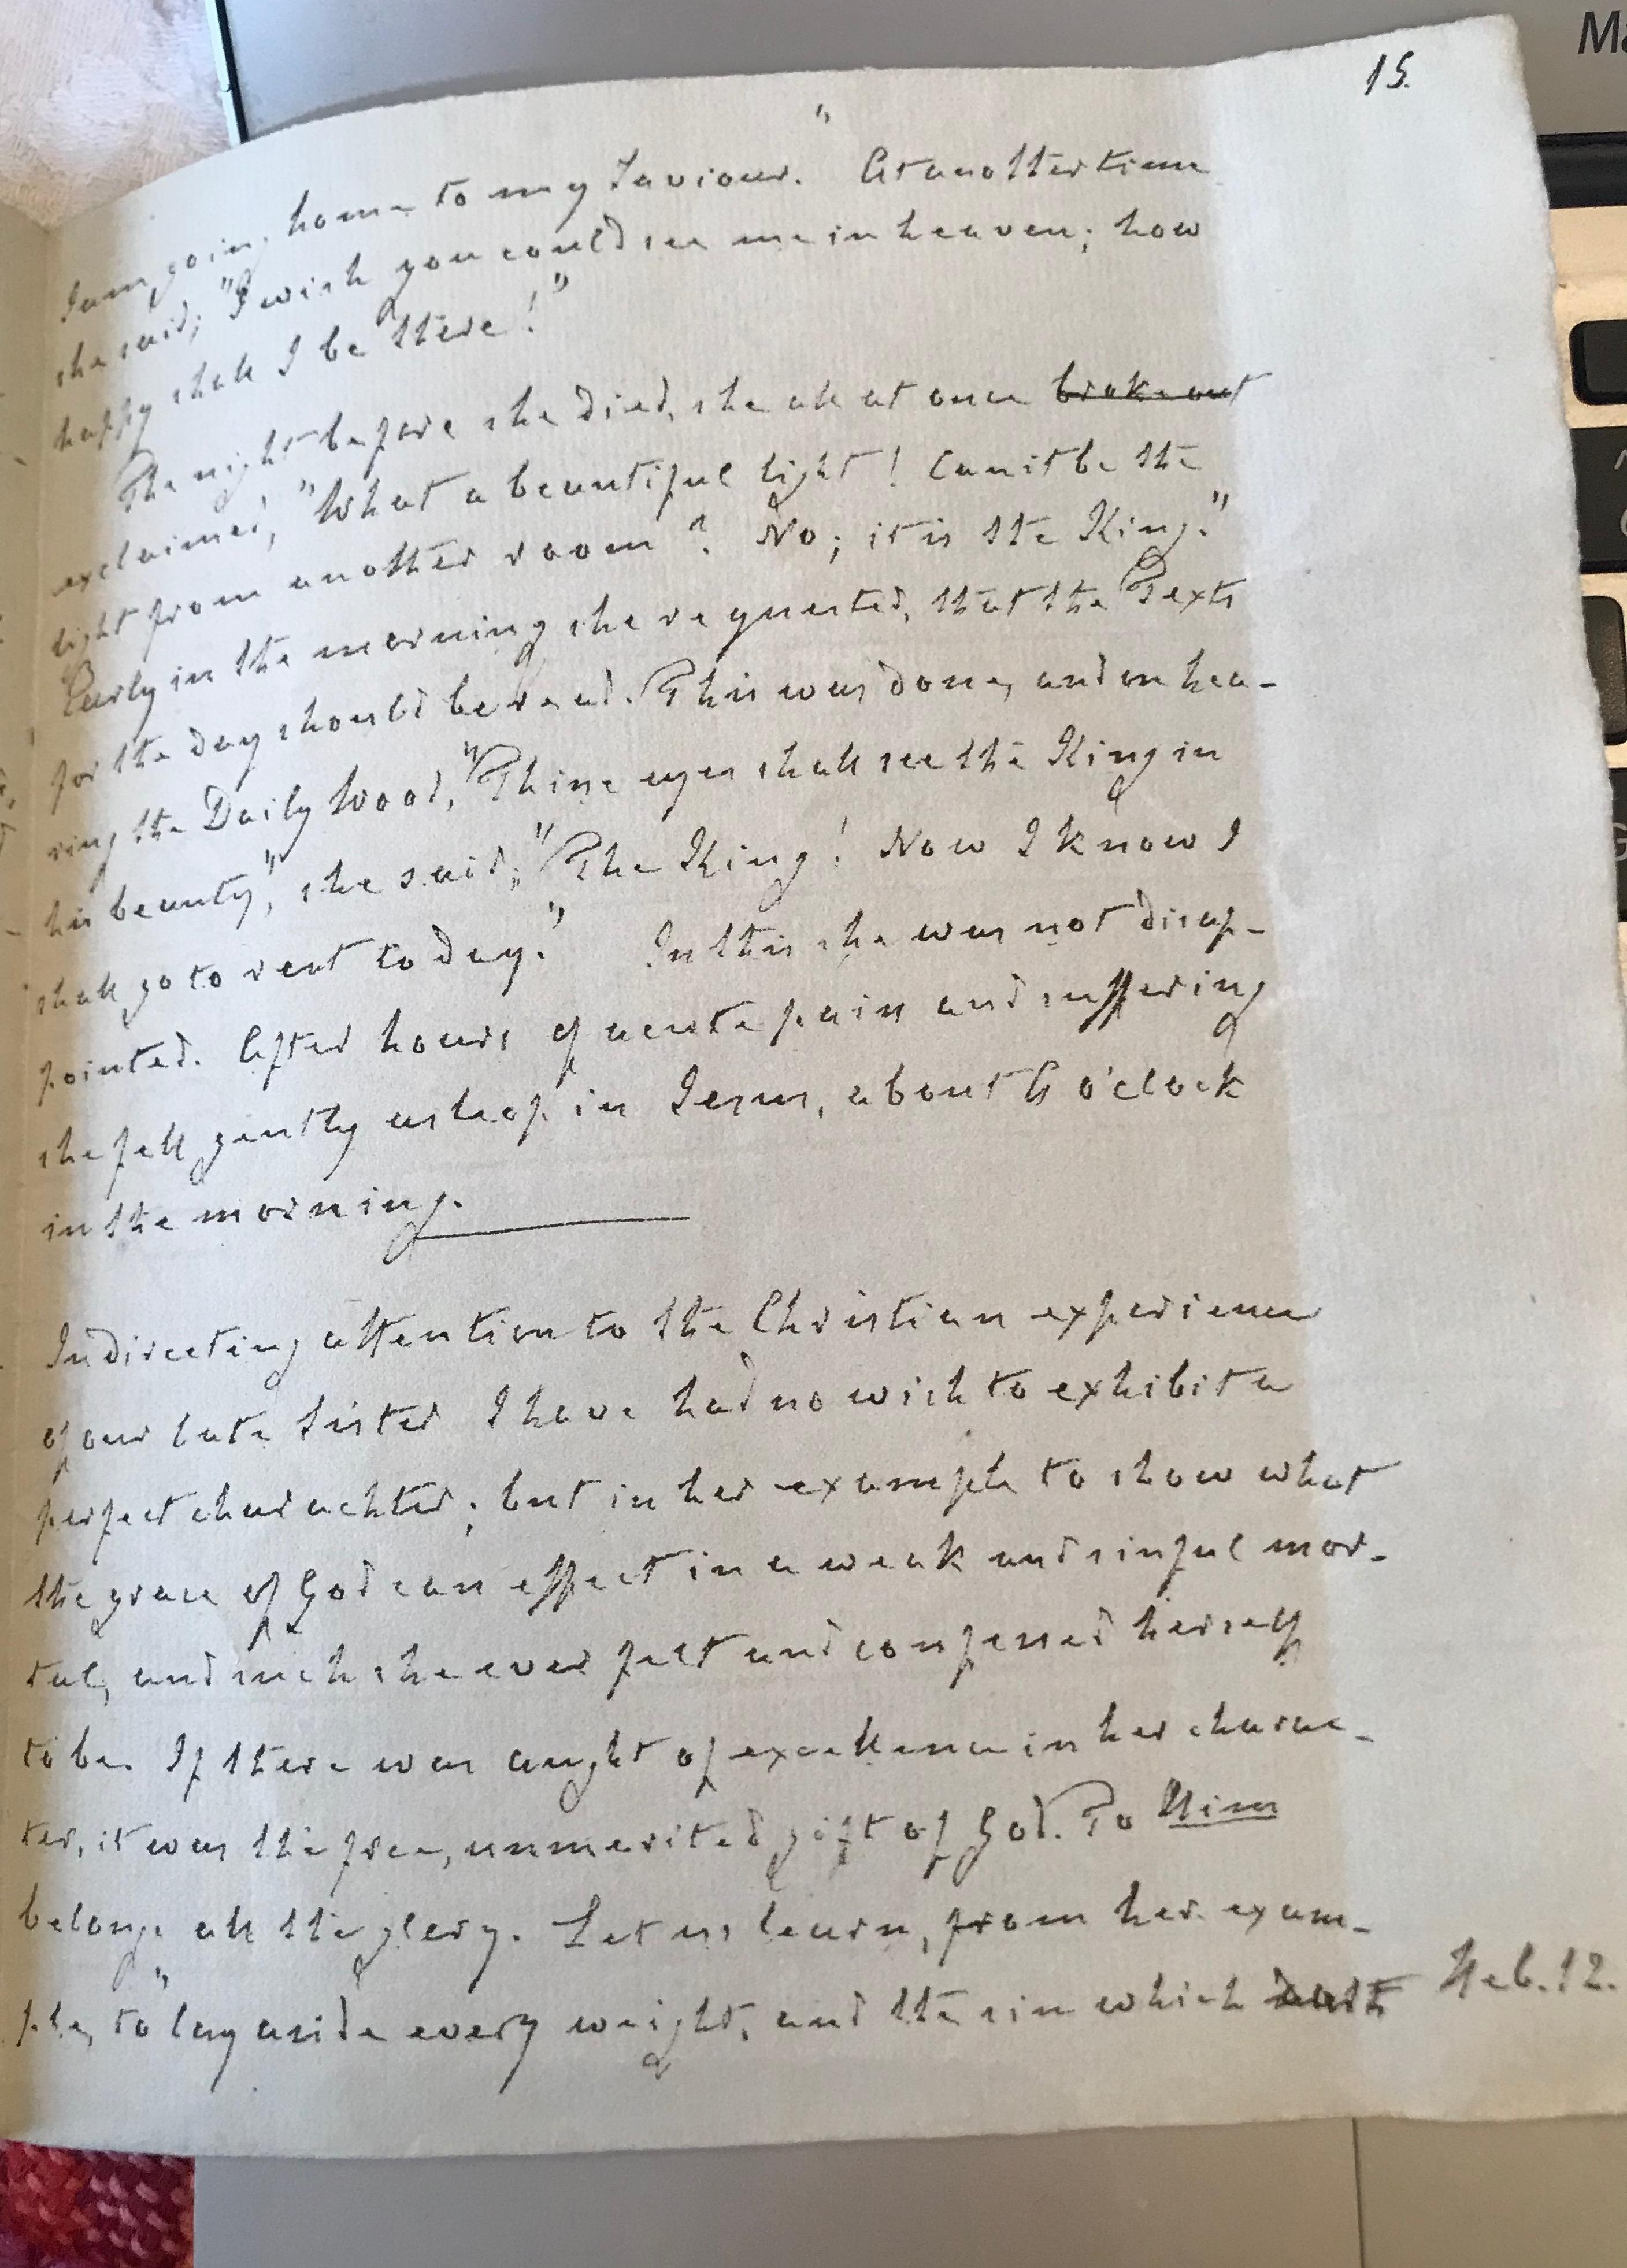 15.
I am going home to my Saviour." At another time
she said; "I wish you could see me in heaven; how
happy shall I be there!"
The night before she died, she all at once broke out
exclaimed, "What a beautiful light! Can it be the
light from another room? No; it is the King."
Early in the morning she requested, that the Texts
for the day should be read. This was done, and on hea-
ring the Daily Word, "Thine eyes shall see the King in
his beauty", she said; "The King! Now I know I
shall go to rest to day." In this she was not disap-
pointed. After hours of acute pain and suffering
she fell gently asleep in Jesus, about o'clock
in the morning.
In directing attention to the Christian experience
of our late Sister I have had no wish to exhibit a
perfect charachter; but in her example to show what
the grace of God can effect in a weak and sinful mor-
tal, and such she ever felt and confessed herself
to be. If there was aught of excellence in her charac-
ter, it was the free, unmerited gift of God. To Him
belongs all the glory. Let us learn, from her exam-
ple, to lay aside every weight, and the sin which doth Heb. 12.
Ma